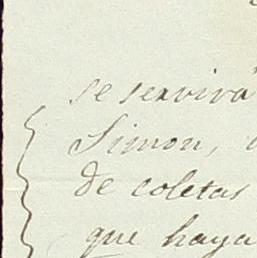 se servirá
Simon,
de coletas
que haya